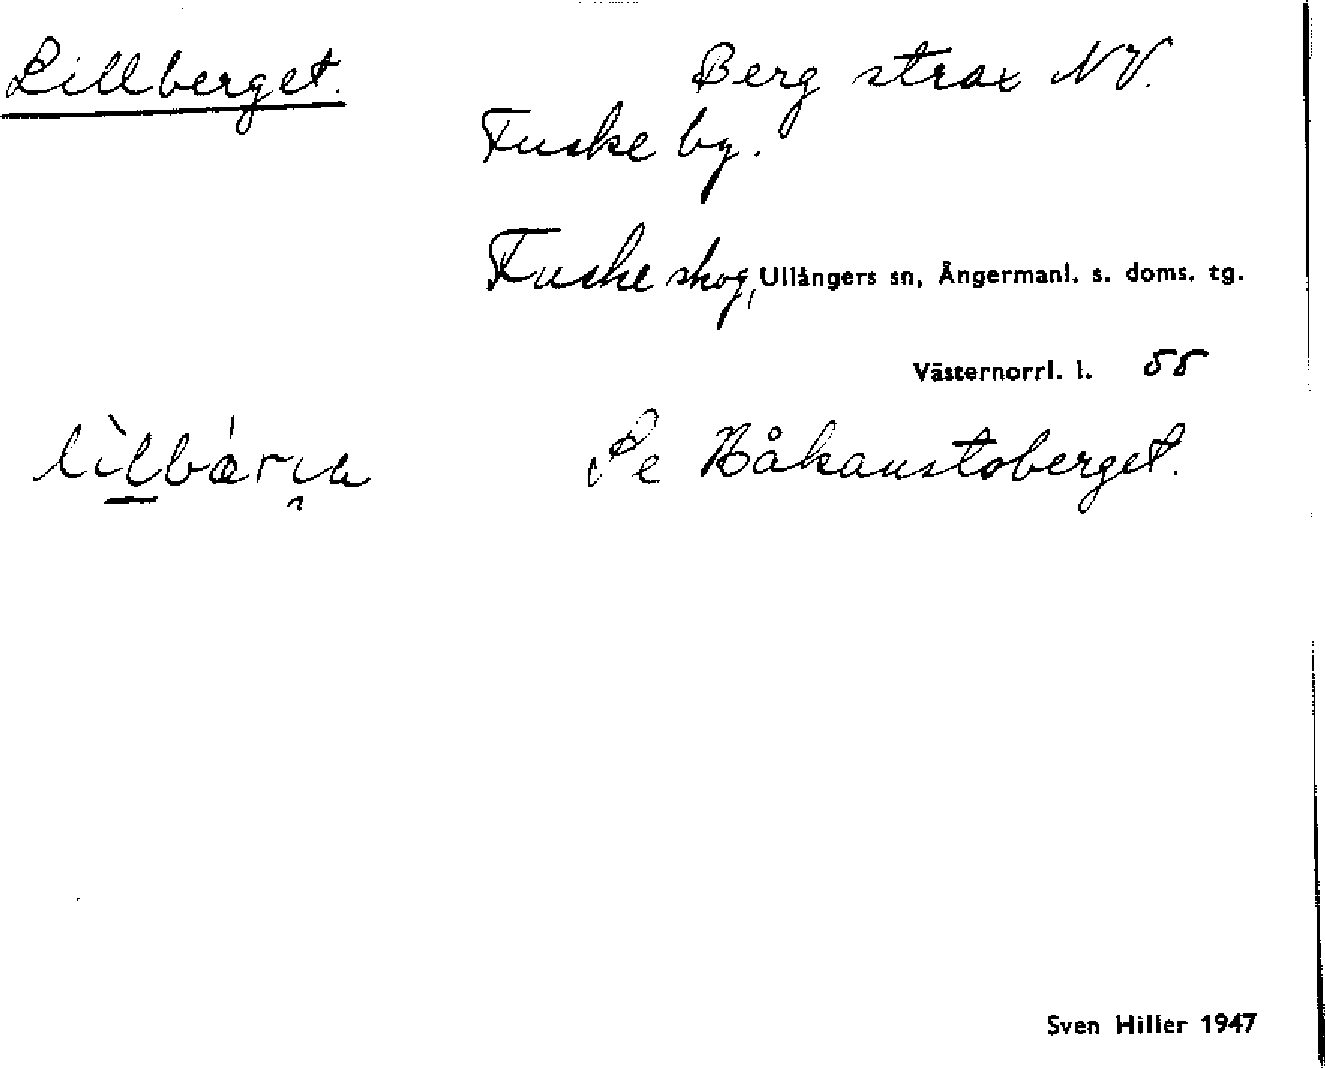 Lillberget.
Berg strax NV.
Fuske by.
Fuske skog, Ullångers sn, Ångermanl. s. doms. tg.
Västernorrl. l. 55
Se Håkanstoberget.
Sven Hiller 1947